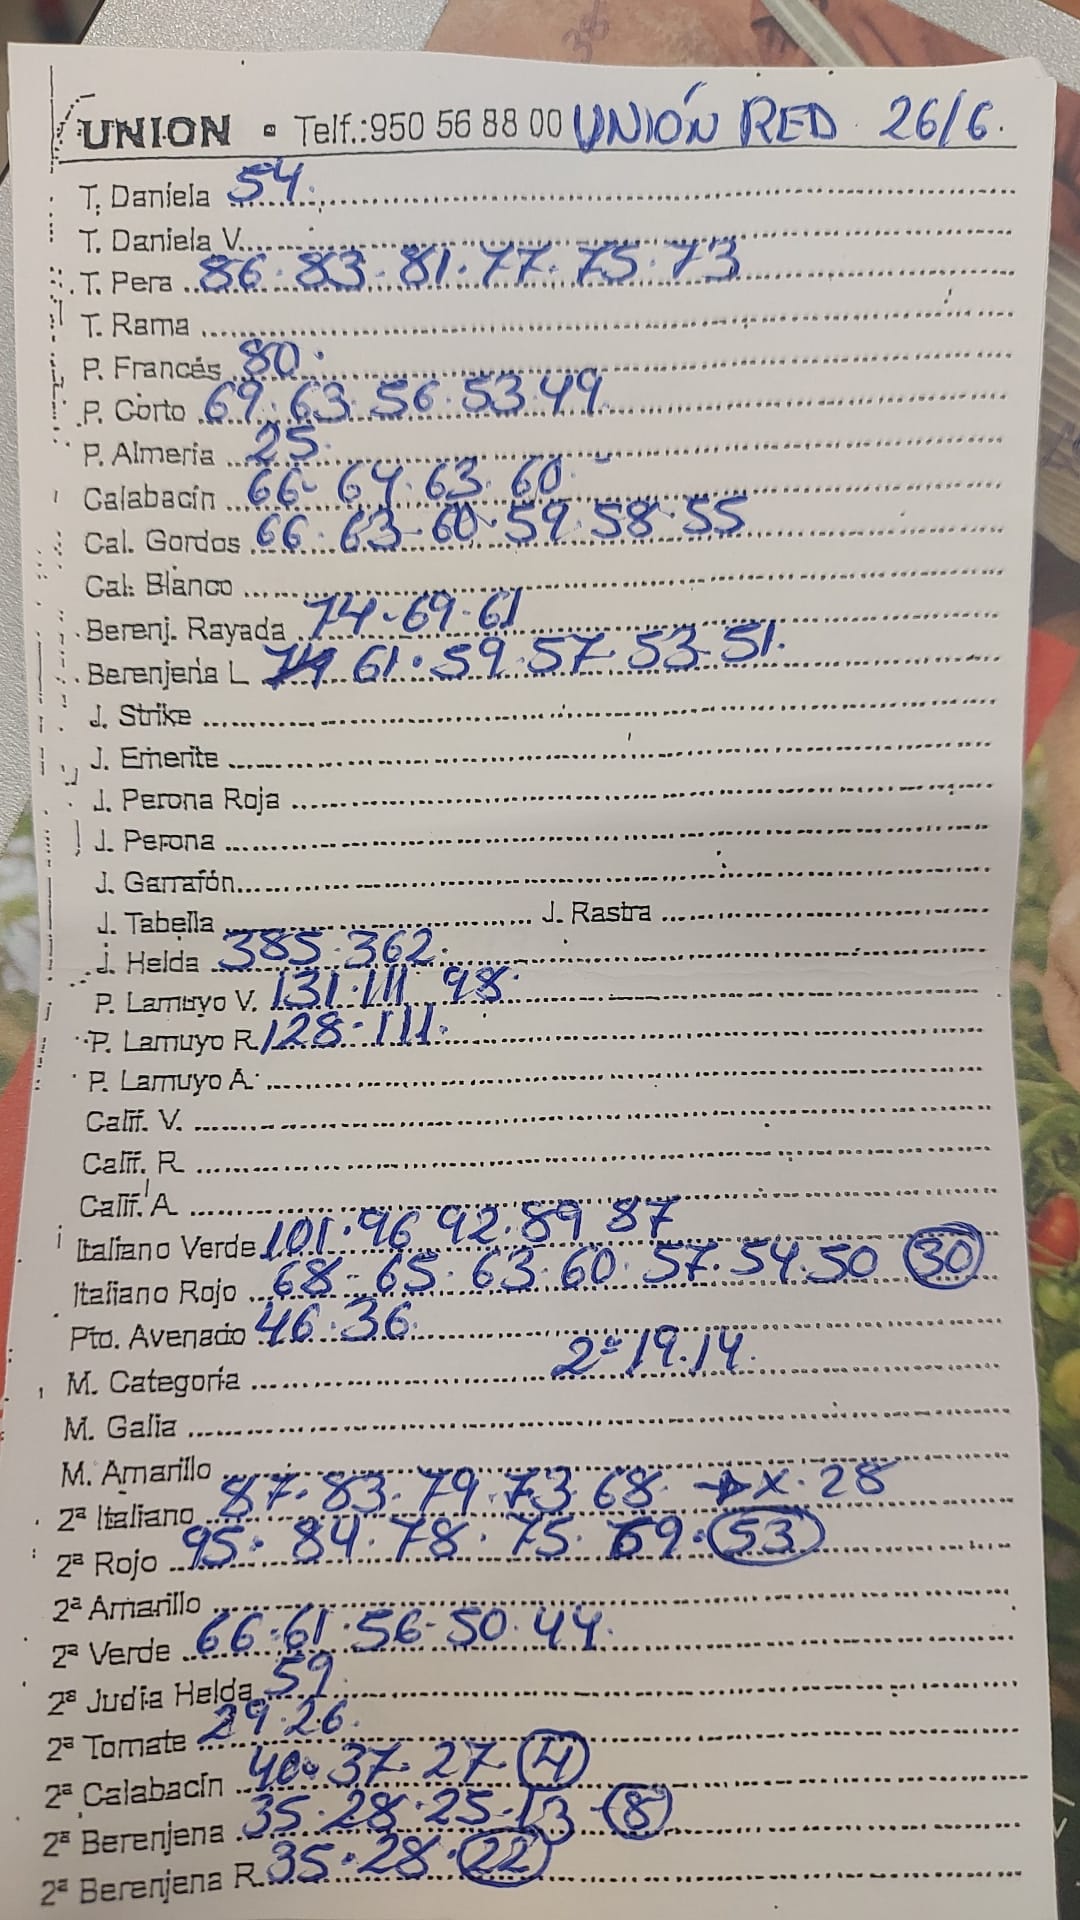 UNION - Telf.:950 56 88 00 UNIÓN RED 26/6.
T. Daniela 54.
T. Daniela V.
T. Pera 86-83-81-77-75-73
T. Rama
P. Francés 80.
P. Corto 69.63.56.53.49
P. Almeria 25
Calabacín 66-64.63.60-
Cal. Gordos 66.63-60-59.58.55
Cal. Blanco
Berenj. Rayada 74-69-61
Berenjena L 61.59.57.53-51.
J. Strike
J. Emerite
J. Perona Roja
J. Perona
J. Garrafón
J. Tabella J. Rastra
J. Helda 385.362.
P. Lamuyo V. 131.111-98.
P. Lamuyo R. 128-111.
P. Lamuyo A.
Calif. V.
Calif. R.
Calif. A
Italiano Verde 101.96 92.89 87
Italiano Rojo 68-65.63.60.57.54.50 30
Pto. Avenado 46.36.
M. Categoría 2ª 19.14.
M. Galia
M. Amarillo
2ª Italiano 87.83.79.73.68. → X.28
2ª Rojo 95.84.78.75.69.53
2ª Amarillo
2ª Verde 66.61.56-50.44.
2ª Judía Helda 59.
2ª Tomate 29.26.
2ª Calabacín 40.37.27-4
2ª Berenjena 35.28.25-13-8
2ª Berenjena R. 35.28.22